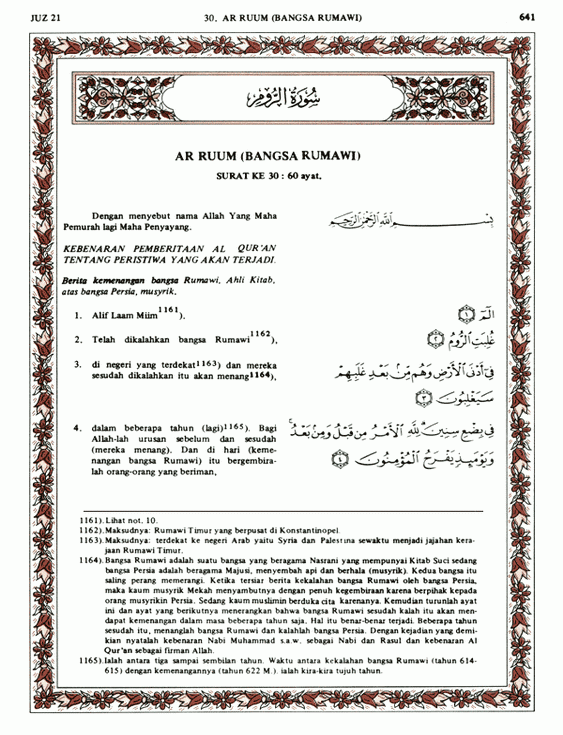 JUZ 21
30. AR RUUM (BANGSA RUMAWI)
641
سُورَةُ الرُّومِ
AR RUUM (BANGSA RUMAWI)
SURAT KE 30 : 60 ayat.
Dengan menyebut nama Allah Yang Maha
Pemurah lagi Maha Penyayang.
بِسْمِ اللَّهِ الرَّحْمَٰنِ الرَّحِيمِ
KEBENARAN PEMBERITAAN AL QUR'AN
TENTANG PERISTIWA YANG AKAN TERJADI.
Berita kemenangan bangsa Rumawi, Ahli Kitab,
atas bangsa Persia, musyrik.
1. Alif Laam Miim1161).
الٓمٓ ﴿١﴾
2. Telah dikalahkan bangsa Rumawi1162),
غُلِبَتِ الرُّومُ ﴿٢﴾
3. di negeri yang terdekat1163) dan mereka
sesudah dikalahkan itu akan menang1164),
فِىٓ أَدْنَى الْأَرْضِ وَهُم مِّنۢ بَعْدِ غَلَبِهِمْ
سَيَغْلِبُونَ ﴿٣﴾
4. dalam beberapa tahun (lagi)1165). Bagi
Allah-lah urusan sebelum dan sesudah
(mereka menang). Dan di hari (keme-
nangan bangsa Rumawi) itu bergembira-
lah orang-orang yang beriman,
فِى بِضْعِ سِنِينَ ۗ لِلَّهِ الْأَمْرُ مِن قَبْلُ وَمِنۢ بَعْدُ ۚ
وَيَوْمَئِذٍ يَفْرَحُ الْمُؤْمِنُونَ ﴿٤﴾
1161). Lihat not. 10.
1162). Maksudnya: Rumawi Timur yang berpusat di Konstantinopel.
1163). Maksudnya: terdekat ke negeri Arab yaitu Syria dan Palestina sewaktu menjadi jajahan kera-
jaan Rumawi Timur.
1164). Bangsa Rumawi adalah suatu bangsa yang beragama Nasrani yang mempunyai Kitab Suci sedang
bangsa Persia adalah beragama Majusi, menyembah api dan berhala (musyrik). Kedua bangsa itu
saling perang memerangi. Ketika tersiar berita kekalahan bangsa Rumawi oleh bangsa Persia,
maka kaum musyrik Mekah menyambutnya dengan penuh kegembiraan karena berpihak kepada
orang musyrikin Persia. Sedang kaum muslimin berduka cita karenanya. Kemudian turunlah ayat
ini dan ayat yang berikutnya menerangkan bahwa bangsa Rumawi sesudah kalah itu akan men-
dapat kemenangan dalam masa beberapa tahun saja. Hal itu benar-benar terjadi. Beberapa tahun
sesudah itu, menanglah bangsa Rumawi dan kalahlah bangsa Persia. Dengan kejadian yang demi-
kian nyatalah kebenaran Nabi Muhammad s.a.w. sebagai Nabi dan Rasul dan kebenaran Al
Qur'an sebagai firman Allah.
1165). Ialah antara tiga sampai sembilan tahun. Waktu antara kekalahan bangsa Rumawi (tahun 614-
615) dengan kemenangannya (tahun 622 M.). ialah kira-kira tujuh tahun.